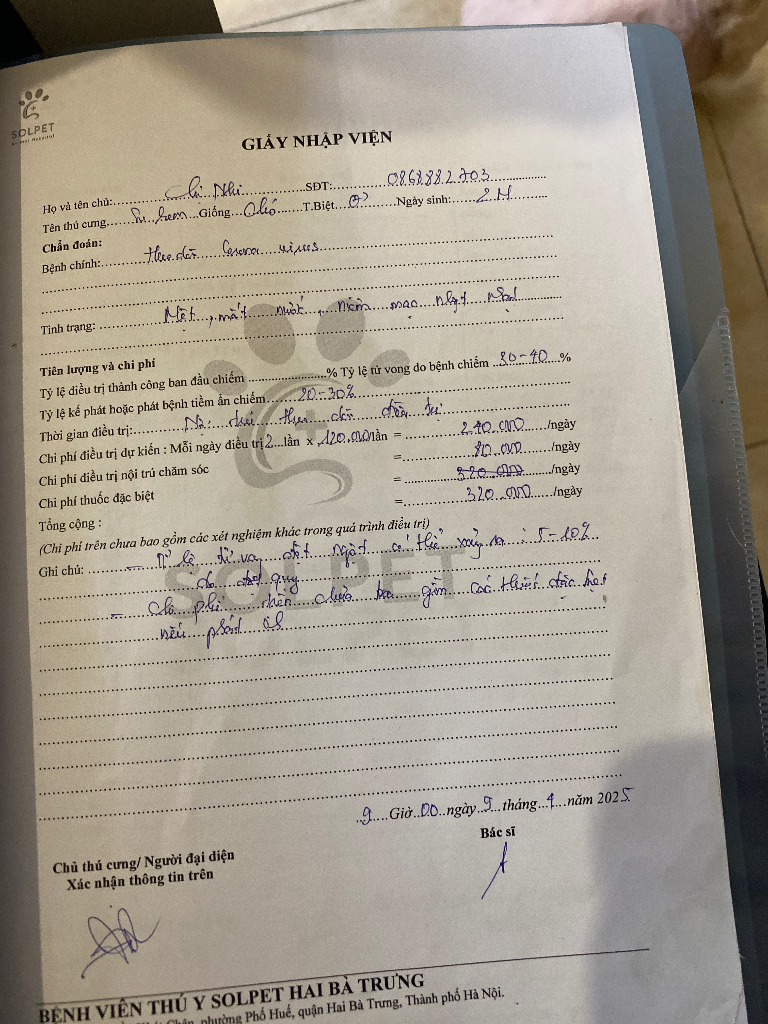 SOLPET
Animal Hospital
GIẤY NHẬP VIỆN
Họ và tên chủ: Chị Nhi SĐT: 0868882703
Tên thú cưng Giống Chó T.Biệt ♂ Ngày sinh: 2M
Chẩn đoán:
Bệnh chính: theo dõi Corona virus
Tình trạng: Mệt, mất nước, niêm mạc nhợt nhạt
Tiên lượng và chi phí
Tỷ lệ điều trị thành công ban đầu chiếm % Tỷ lệ tử vong do bệnh chiếm 30-40 %
Tỷ lệ kế phát hoặc phát bệnh tiềm ẩn chiếm 20-30%
Thời gian điều trị: Nội trú theo dõi điều trị
Chi phí điều trị dự kiến : Mỗi ngày điều trị 2 lần x 120.000 lần = 240.000 /ngày
Chi phí điều trị nội trú chăm sóc = 80.000 /ngày
Chi phí thuốc đặc biệt = 320.000 /ngày
Tổng cộng : = 320.000 /ngày
(Chi phí trên chưa bao gồm các xét nghiệm khác trong quá trình điều trị)
Ghi chú: - Tỉ lệ tử vong đột ngột có thể xảy ra : 5-10%
do đột quỵ
- Chi phí trên chưa bao gồm các thuốc đặc biệt
nếu phát sinh
9 Giờ 00 ngày 9 tháng 4 năm 2025
Bác sĩ
Chủ thú cưng/ Người đại diện
Xác nhận thông tin trên
SOLPET
BỆNH VIỆN THÚ Y SOLPET HAI BÀ TRƯNG
phường Phố Huế, quận Hai Bà Trưng, Thành phố Hà Nội.